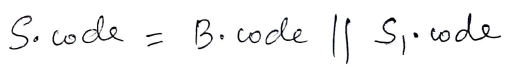 S.code = B.code || S₁.code